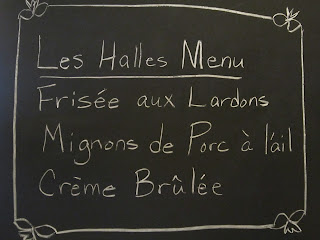 Les Halles Menu
Frisée aux Lardons
Mignons de Porc à l'ail
Crème Brûlée